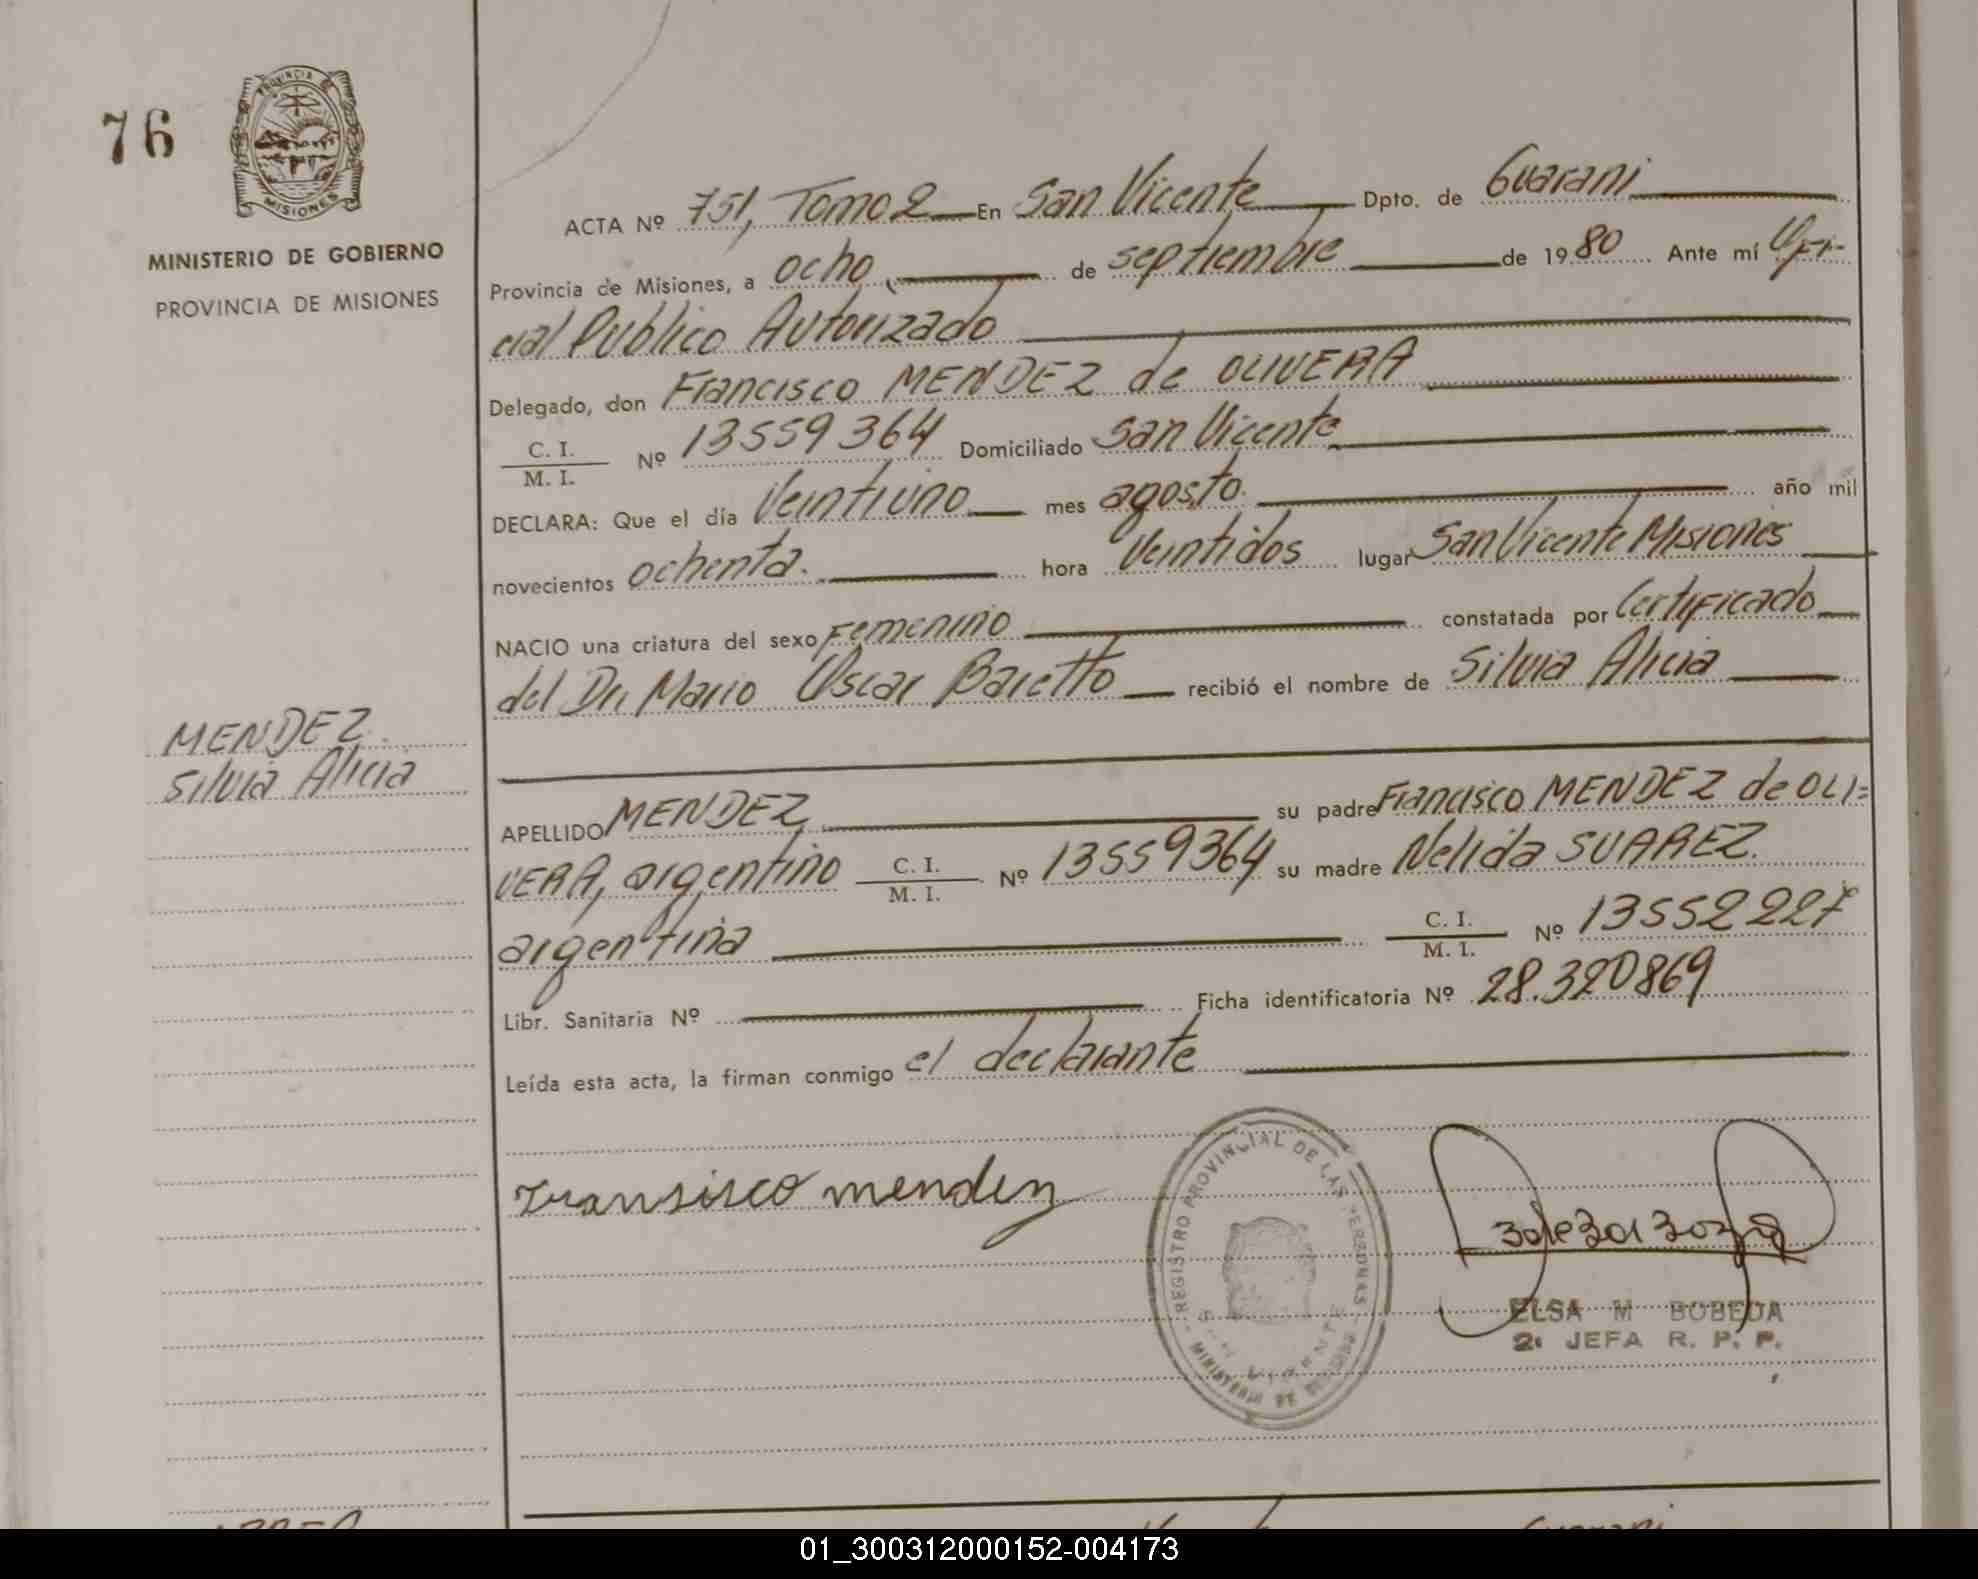 76
PROVINCIA DE
MISIONES
MINISTERIO DE GOBIERNO
PROVINCIA DE MISIONES
MENDEZ
Silvia Alicia
ACTA Nº 751, Tomo 2 En San Vicente Dpto. de Guarani
Provincia de Misiones, a ocho, de septiembre de 1980 Ante mí Ofi-
cial Publico Autorizado
Delegado, don Francisco MENDEZ de OLIVERA
C. I.
M. I. Nº 13559364 Domiciliado San Vicente
DECLARA: Que el día Veintiuno mes agosto. año mil
novecientos ochenta. hora Veintidos lugar San Vicente Misiones
NACIO una criatura del sexo Femenino constatada por Certificado
del Dr. Mario Oscar Baretto recibió el nombre de Silvia Alicia
APELLIDO MENDEZ su padre Francisco MENDEZ de OLI=
VERA, argentino C. I. M. I. Nº 13559364 su madre Nelida SUAREZ.
argentina C. I. M. I. Nº 13552227
Libr. Sanitaria Nº Ficha identificatoria Nº 28.320869
Leída esta acta, la firman conmigo el declarante
Fransisco mendez
REGISTRO PROVINCIAL DE LAS PERSONAS
ELSA M BOBEDA
2ª JEFA R. P. P.
Guarani
01_300312000152-004173